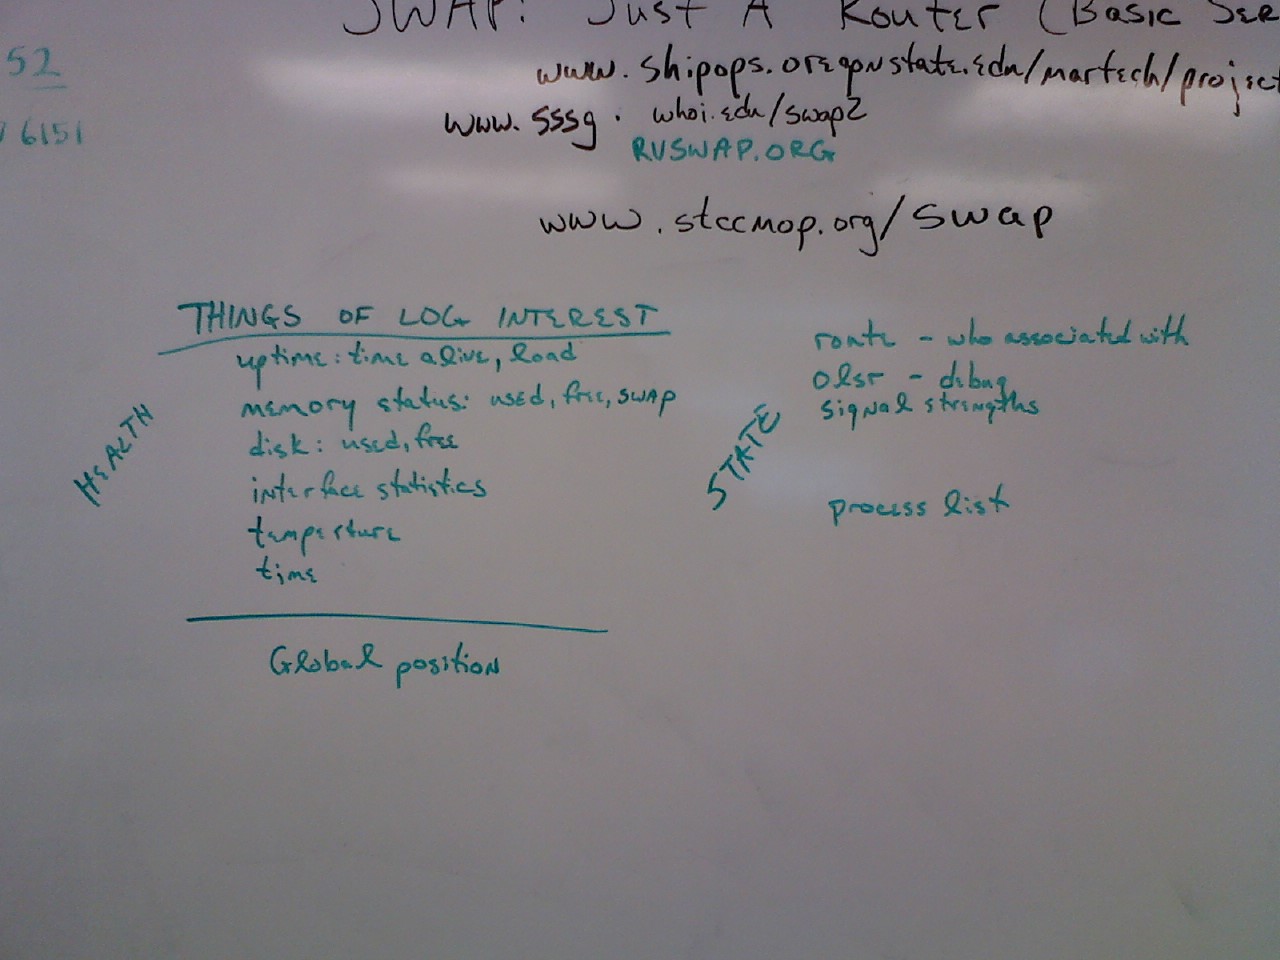 SWAP: Just A Router (Basic Ser
52
www.shipops.oregonstate.edu/martech/project
www.sssg.whoi.edu/swap2
6151
RVSWAP.ORG
www.stccmop.org/swap
THINGS OF LOG INTEREST
HEALTH
uptime: time alive, load
memory status: used, free, swap
disk: used, free
interface statistics
temperture
time
Global position
STATE
route - who associated with
olsr - debug
signal strengths
process list